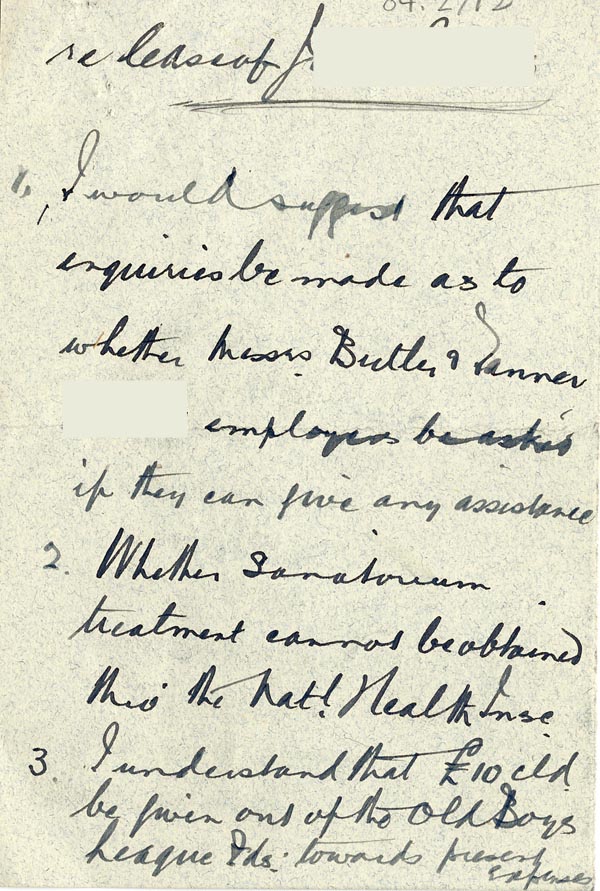 re lease of J.
1, I would suggest that
enquiries be made as to
whether Messrs. Butler & Tanner
employers be asked
if they can give any assistance
2. Whether Sanatorium
treatment cannot be obtained
thro' the Natl. Health Insce.
3. I understand that £10 cld.
be given out of the Old Boys
League Fds: towards present
expenses